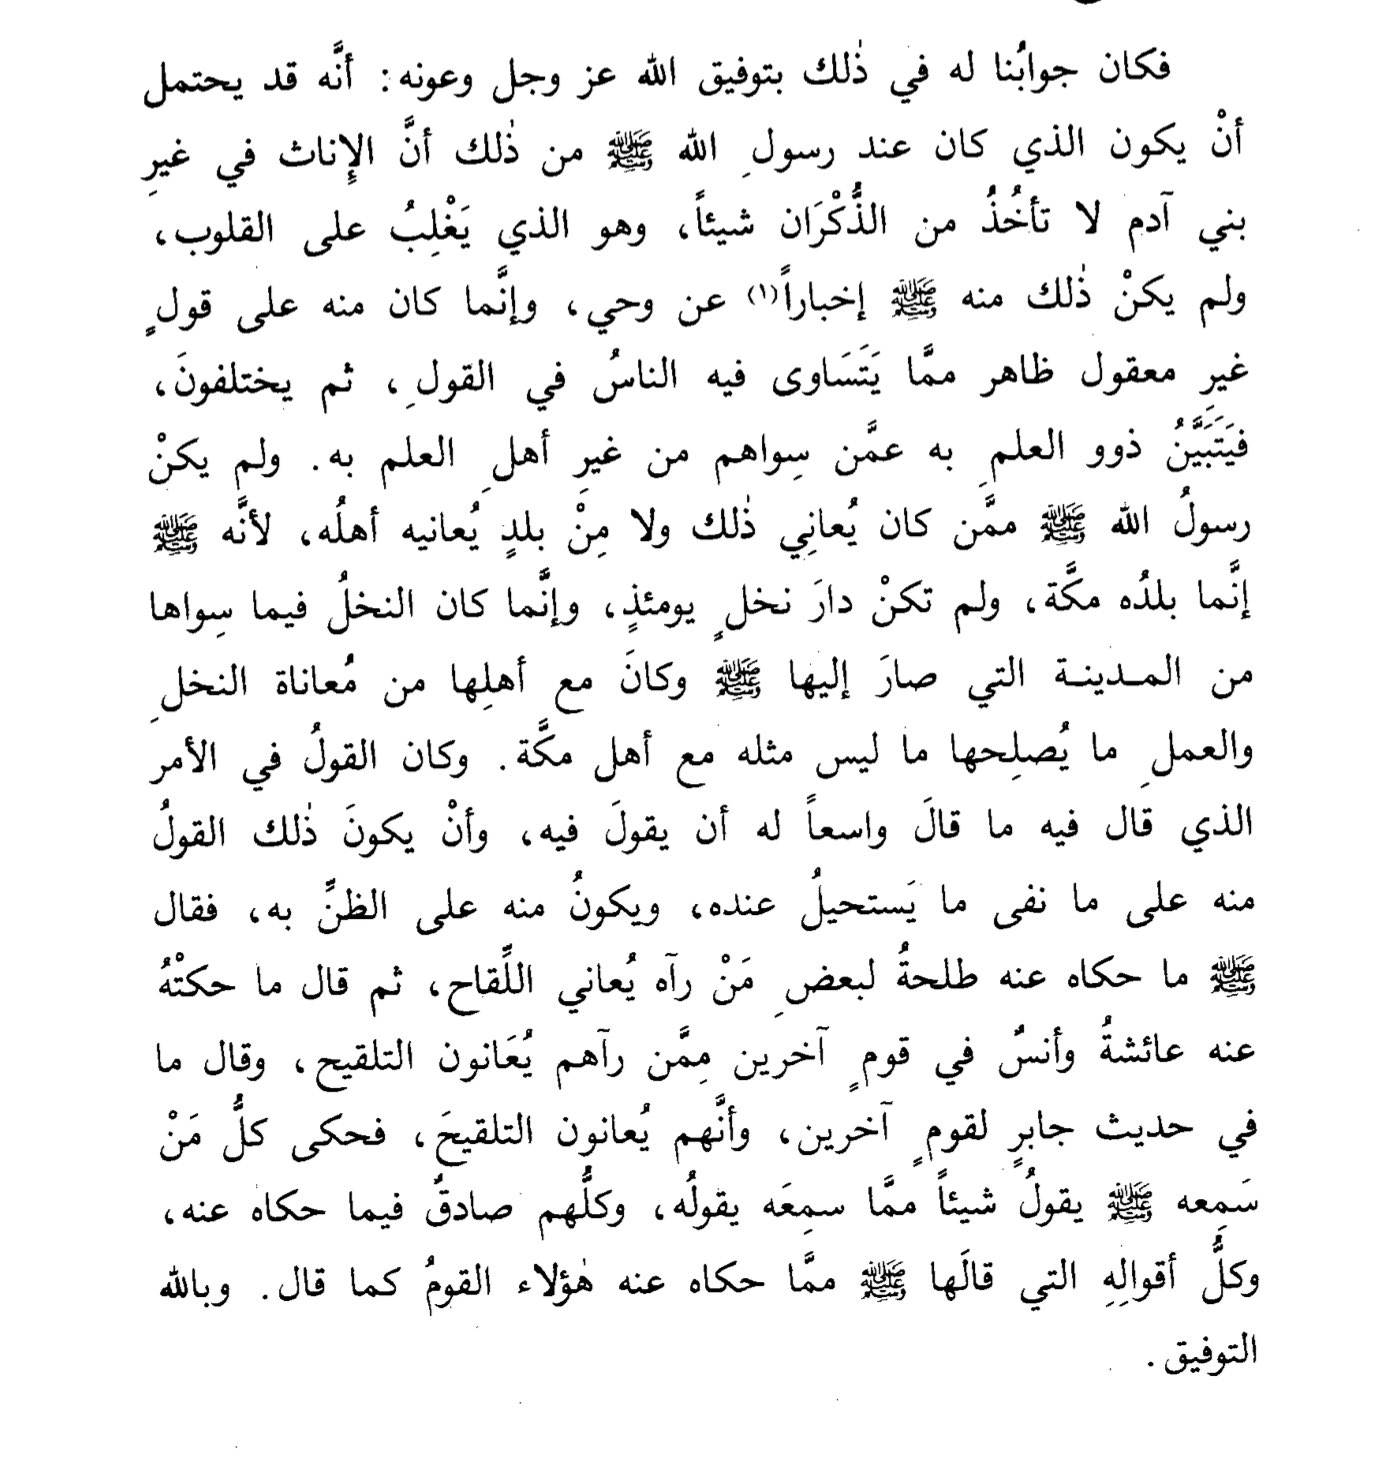 فكان جوابُنا له في ذٰلك بتوفيق الله عز وجل وعونه: أنَّه قد يحتمل
أنْ يكون الذي كان عند رسولِ الله ﷺ من ذٰلك أنَّ الإِناث في غيرِ
بني آدم لا تأخُذُ من الذُّكْرَان شيئاً، وهو الذي يَغْلِبُ على القلوب،
ولم يكنْ ذٰلك منه ﷺ إخباراً(١) عن وحي، وإنَّما كان منه على قولٍ
غيرِ معقول ظاهر ممَّا يَتَسَاوى فيه الناسُ في القولِ، ثم يختلفونَ،
فيَتَبَيَّنُ ذوو العلمِ به عمَّن سِواهم من غيرِ أهلِ العلم به. ولم يكنْ
رسولُ الله ﷺ ممَّن كان يُعانِي ذٰلك ولا مِنْ بلدٍ يُعانيه أهلُه، لأنَّه ﷺ
إنَّما بلدُه مكَّة، ولم تكنْ دارَ نخلٍ يومئذٍ، وإنَّما كان النخلُ فيما سِواها
من المـدينـة التي صارَ إليها ﷺ وكانَ مع أهلِها من مُعاناة النخلِ
والعملِ ما يُصلِحها ما ليس مثله مع أهل مكَّة. وكان القولُ في الأمر
الذي قال فيه ما قالَ واسعاً له أن يقولَ فيه، وأنْ يكونَ ذٰلك القولُ
منه على ما نفى ما يَستحيلُ عنده، ويكونُ منه على الظنِّ به، فقال
ﷺ ما حكاه عنه طلحةُ لبعضِ مَنْ رآه يُعاني اللِّقاح، ثم قال ما حكتْهُ
عنه عائشةُ وأنسٌ في قومٍ آخرين مِمَّن رآهم يُعَانون التلقيح، وقال ما
في حديث جابرٍ لقومٍ آخرين، وأنَّهم يُعانون التلقيحَ، فحكى كلُّ مَنْ
سَمِعه ﷺ يقولُ شيئاً ممَّا سمِعَه يقولُه، وكلُّهم صادقٌ فيما حكاه عنه،
وكلُّ أقوالِهِ التي قالَها ﷺ ممَّا حكاه عنه هٰؤلاء القومُ كما قال. وبالله
التوفيق.